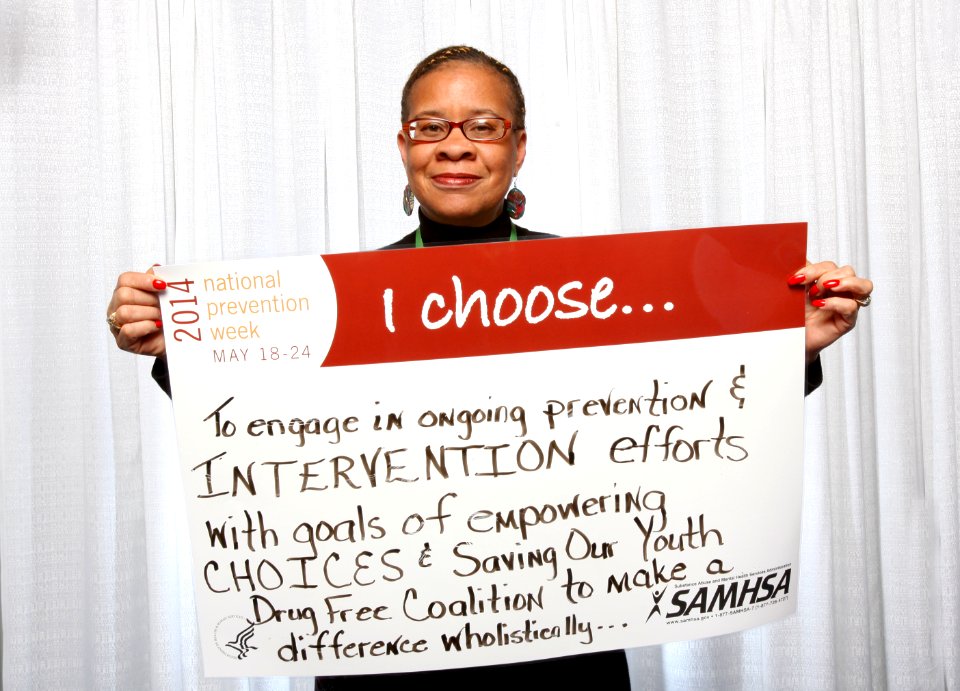 2014
national
prevention
week
MAY 18-24
I choose...
To engage in ongoing prevention &
INTERVENTION efforts
with goals of empowering
CHOICES & Saving Our Youth
Drug Free Coalition to make a
difference wholistically...
Substance Abuse and Mental Health Services Administration
SAMHSA
www.samhsa.gov • 1-877-SAMHSA-7 (1-877-726-4727)